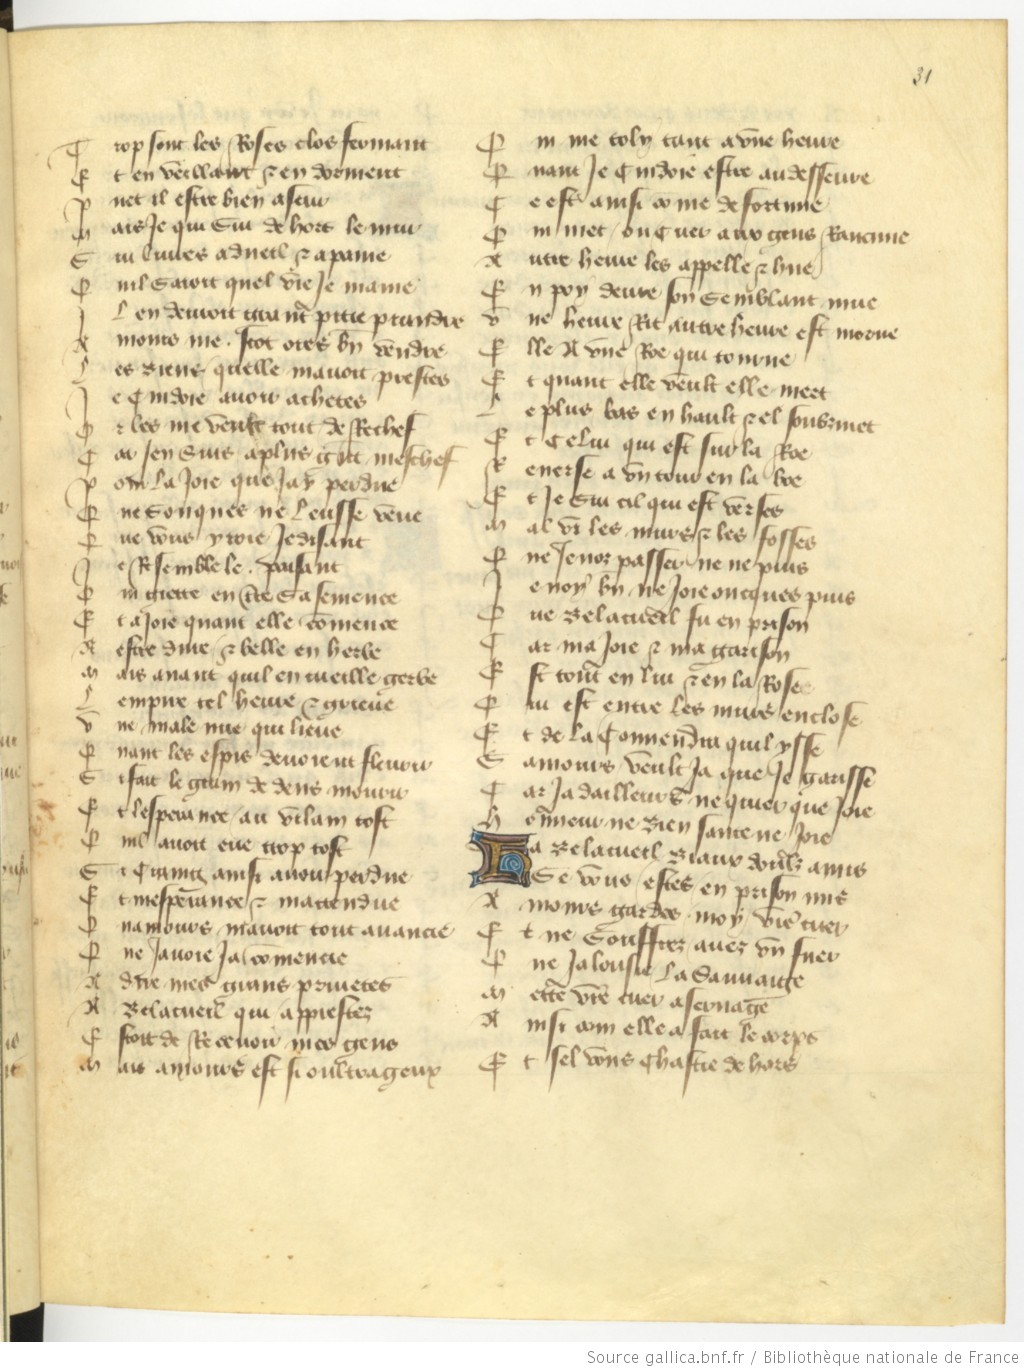 31
Trop sont les Roses clos fermant
Et en veillant & en dorment
Puet il estre bien aseur
Mais Je qui Sui de hors le mur
Sui liures a dueil & a paine
Qui Sauroit quel vie Je maine
Il en deuroit grant pitie prandre
Amours me scet ores bn vendre
Les Biens quelle mauoit prestes
Je Cuidoie auoir achetes
Or les me veult tout de Rechef
Car Jen Suis a plus grant meschef
Pour La Joie que Jay perdue
Que Sonques ne Leusse veue
Que vous yroie Je disant
Je Resemble le paisant
Qui giette en terre Sa semence
Et a Joie quant elle comence
A estre drue & belle en herbe
Mais auant quil en cueille gerbe
Lempire tel heure & grieue
Vne male nue qui lieue
Quant les espis deuoient fleurir
Si fait le grain de dens mourir
Et lesperance au vilain tost
Quil auoit eue trop tost
Si Craing ainsi auoir perdue
Et mesperance & mattendue
Quamours mauoit tout auancie
Que Jauoie Ja comencie
A dire mes grans priuetes
A Belacueil qui apprestez
Estoit de Receuoir mes gens
Mais amours est si oultrageux
Qui me toly tant a vne heure
Quant Je Cuidoie estre audesseure
Ce est ainsi come de fortune
Qui met ou Cuer aux gens Rancune
Autre heure les appelle & hue
En poy deure son Semblant mue
Vne heure Rit autre heure est morne
Elle A vne Roe qui tourne
Et quant elle veult elle meet
Le plus bas en hault & el soubzmet
Et Celui qui est sur la Roe
Renerse a vn tour en la boe
Et Je Sui cil qui est verses
Mal vi les murs & les fosses
Que Je nor passer ne ne puis
Je noy bn ne Joie oncques puis
Que Belacueil fu en prison
Car ma Joie & ma garison
Est tout en lui & en la Rose
Qui est entre Les murs enclose
Et de La Conuendra quil ysse
Samours veult Ja que Je garisse
Car Ja dailleurs ne quier que Joie
Honneur ne Bien sante ne Joie
Ha Belacueil Biaux doulz amis
Se vous estes en prison mis
Amours gardes moy vre cuer
Et ne Souffrez a nez vn fuer
Que Jalousie La Sauuaige
Mette vre cuer a seruage
Ainsi com elle a fait le corps
Et sel vous Chastie de hors
Source gallica.bnf.fr / Bibliothèque nationale de France